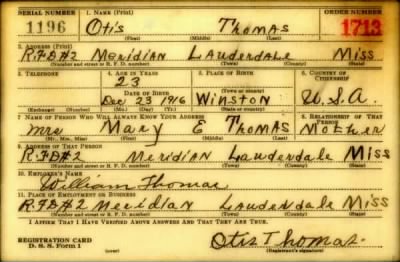 SERIAL NUMBER 1. NAME (Print) ORDER NUMBER
1196 Otis Thomas 1713
(First) (Middle) (Last)
2. ADDRESS (Print)
R.F.D#2 Meridian Lauderdale Miss
(Number and street or R. F. D. number) (Town) (County) (State)
3. TELEPHONE 4. AGE IN YEARS 5. PLACE OF BIRTH 6. COUNTRY OF CITIZENSHIP
23
DATE OF BIRTH Winston
(Town or county)
Dec 23 1916 U.S.A.
(Exchange) (Number) (Mo.) (Day) (Yr.) (State or country)
7. NAME OF PERSON WHO WILL ALWAYS KNOW YOUR ADDRESS 8. RELATIONSHIP OF THAT PERSON
Mrs Mary E Thomas Mother
(Mr., Mrs., Miss) (First) (Middle) (Last)
9. ADDRESS OF THAT PERSON
R.F.D#2 Meridian Lauderdale Miss
(Number and street or R. F. D. number) (Town) (County) (State)
10. EMPLOYER'S NAME
William Thomas
11. PLACE OF EMPLOYMENT OR BUSINESS
R.F.D#2 Meridian Lauderdale Miss
(Number and street or R. F. D. number) (Town) (County) (State)
I AFFIRM THAT I HAVE VERIFIED ABOVE ANSWERS AND THAT THEY ARE TRUE.
REGISTRATION CARD
D. S. S. Form 1 Otis Thomas
(Registrant's signature)